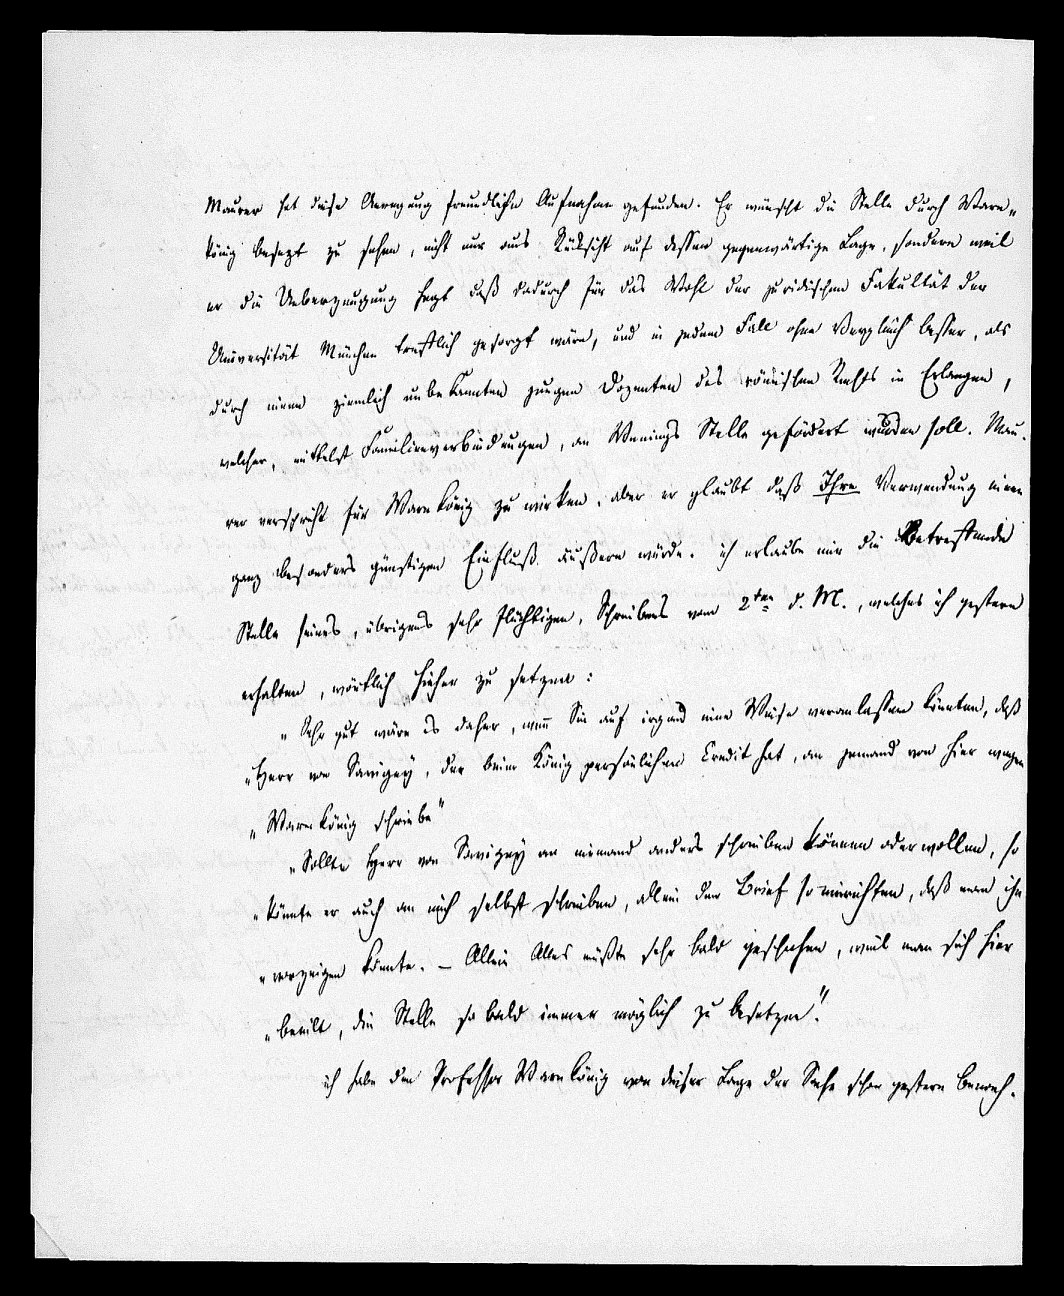 Maurer hat diese Anregung freundliche Aufnahme gefunden. Er wünscht die Stelle durch Warn„
könig besezt zu sehen, nicht nur aus Rüksicht auf dessen gegenwärtige Lage, sondern weil
er die Ueberzeugung hegt daß dadurch für das Wohl der juridischen Fakultät der
Universität München trefflich gesorgt wäre, und in jedem Fall ohne Vergleich besser, als
durch einen ziemlich unbekannten jungen Dozenten des römischen Rechts in Erlangen,
welcher, mittelst Familienverbindungen, an Wenings Stelle gefördert werden soll. Mau-
rer verspricht für Warnkönig zu wirken, aber er glaubt daß Ihre Verwendung einen
ganz besonders günstigen Einfluß äußern würde. ich erlaube mir die Betreffende
Stelle seines, übrigens sehr flüchtigen, Schreibens vom 2ten d. M., welches ich gestern
erhalten, wörtlich hieher zu setzen:
„Sehr gut wäre es daher, wenn Sie auf irgend eine Weise veranlassen könnten, daß
„Herr von Savigny, der beim König persönlichen Credit hat, an jemand von hier wegen
„Warnkönig schriebe"
„Sollte Herr von Savigny an niemand anders schreiben können oder wollen, so
„könnte er auch an mich selbst schreiben, allein den Brief so einrichten, daß man ihn
„vorzeigen könnte. – Allein Alles müßte sehr bald geschehen, weil man sich hier
„beeilt, die Stelle so bald immer möglich zu besetzen."
ich habe den Professor Warnkönig von dieser Lage der Sache schon gestern benach-